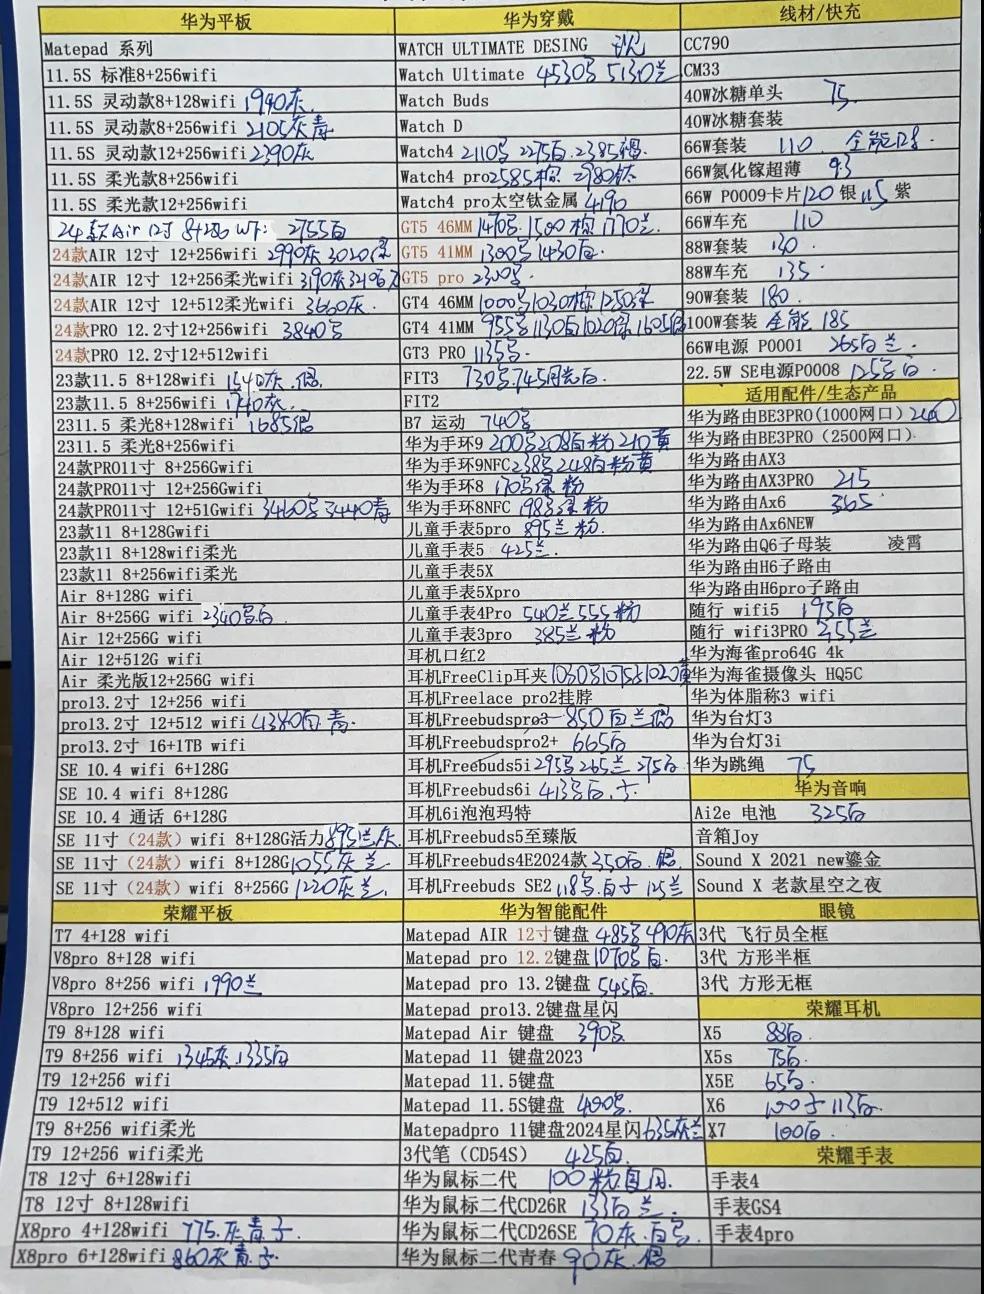 华为平板 华为穿戴 线材/快充
Matepad 系列 WATCH ULTIMATE DESING CC790
11.5S 标准8+256wifi Watch Ultimate 4530 5130兰 CM33
11.5S 灵动款8+128wifi 1940灰 Watch Buds 40W冰糖单头 75
11.5S 灵动款8+256wifi 2105灰青 Watch D 40W冰糖套装
11.5S 灵动款12+256wifi 2390灰 Watch4 2110 2275白 2385 66W套装 110 全能128
11.5S 柔光款8+256wifi Watch4 pro 2585棕 2980钛 66W氮化镓超薄 93
11.5S 柔光款12+256wifi Watch4 pro太空钛金属 4190 66W P0009卡片 120 银 115 紫
24款Air 12寸 8+256 wifi 2755白 GT5 46MM 1470 1500 棕 1770兰 66W车充 110
24款AIR 12寸 12+256wifi 2990灰 3020 GT5 41MM 1300 1430白 88W套装 130
24款AIR 12寸 12+256柔光wifi 3190灰 GT5 pro 2300 88W车充 135
24款AIR 12寸 12+512柔光wifi 3660灰 GT4 46MM 1000 1030棕 1250绿 90W套装 180
24款PRO 12.2寸12+256wifi 3840 GT4 41MM 955 1130白 1020绿 1605 100W套装 全能 185
24款PRO 12.2寸12+512wifi GT3 PRO 1135 66W电源 P0001 265白 兰
23款11.5 8+128wifi 1540灰 FIT3 730 745 白 22.5W SE电源P0008 125 白
23款11.5 8+256wifi 1740灰 FIT2 适用配件/生态产品
2311.5 柔光8+128wifi 1685 B7 运动 740 华为路由BE3PRO(1000网口) 240
2311.5 柔光8+256wifi 华为手环9 200 208白 粉 210黄 华为路由BE3PRO（2500网口）
24款PRO11寸 8+256Gwifi 华为手环9NFC 238 248白 粉 黄 华为路由AX3
24款PRO11寸 12+256Gwifi 华为手环8 170 绿 粉 华为路由AX3PRO 215
24款PRO11寸 12+51Gwifi 3460 3440青 华为手环8NFC 198 绿 粉 华为路由Ax6 365
23款11 8+128Gwifi 儿童手表5pro 895兰 粉 华为路由Ax6NEW
23款11 8+128wifi柔光 儿童手表5 425兰 华为路由Q6子母装 凌霄
23款11 8+256wifi柔光 儿童手表5X 华为路由H6子路由
Air 8+128G wifi 儿童手表5Xpro 华为路由H6pro子路由
Air 8+256G wifi 2340 白 儿童手表4Pro 540兰 555 粉 随行 wifi5 195白
Air 12+256G wifi 儿童手表3pro 385兰 粉 随行 wifi3PRO 255兰
Air 12+512G wifi 耳机口红2 华为海雀pro64G 4k
Air 柔光版12+256G wifi 耳机FreeClip耳夹 1030 1075 1020 华为海雀摄像头 HQ5C
pro13.2寸 12+256 wifi 耳机Freelace pro2挂脖 华为体脂称3 wifi
pro13.2寸 12+512 wifi 4380白 青 耳机Freebudspro3 850 白 兰 华为台灯3
pro13.2寸 16+1TB wifi 耳机Freebudspro2+ 665白 华为台灯3i
SE 10.4 wifi 6+128G 耳机Freebuds5i 295 265兰 275白 华为跳绳 75
SE 10.4 wifi 8+128G 耳机Freebuds6i 413 白 华为音响
SE 10.4 通话 6+128G 耳机6i泡泡玛特 Ai2e 电池 325白
SE 11寸（24款）wifi 8+128G活力 895兰灰 耳机Freebuds5至臻版 音箱Joy
SE 11寸（24款）wifi 8+128G 1055灰 兰 耳机Freebuds4E2024款 350白 Sound X 2021 new鎏金
SE 11寸（24款）wifi 8+256G 1220灰 兰 耳机Freebuds SE2 118 白 125兰 Sound X 老款星空之夜
荣耀平板 华为智能配件 眼镜
T7 4+128 wifi Matepad AIR 12寸键盘 485 490灰 3代 飞行员全框
V8pro 8+128 wifi Matepad pro 12.2键盘 1070 白 3代 方形半框
V8pro 8+256 wifi 1990兰 Matepad pro 13.2键盘 545白 3代 方形无框
V8pro 12+256 wifi Matepad pro13.2键盘星闪 荣耀耳机
T9 8+128 wifi Matepad Air 键盘 390 X5 88白
T9 8+256 wifi 1345灰 1335白 Matepad 11 键盘2023 X5s 75白
T9 12+256 wifi Matepad 11.5键盘 X5E 65白
T9 12+512 wifi Matepad 11.5S键盘 400 X6 113白
T9 8+256 wifi柔光 Matepadpro 11键盘2024星闪 635灰兰 X7 100白
T9 12+256 wifi柔光 3代笔（CD54S） 425白 荣耀手表
T8 12寸 6+128wifi 华为鼠标二代 100 粉 手表4
T8 12寸 8+128wifi 华为鼠标二代CD26R 133白 兰 手表GS4
X8pro 4+128wifi 775 灰 青 华为鼠标二代CD26SE 70灰 白 手表4pro
X8pro 6+128wifi 860灰 青 华为鼠标二代青春 90灰